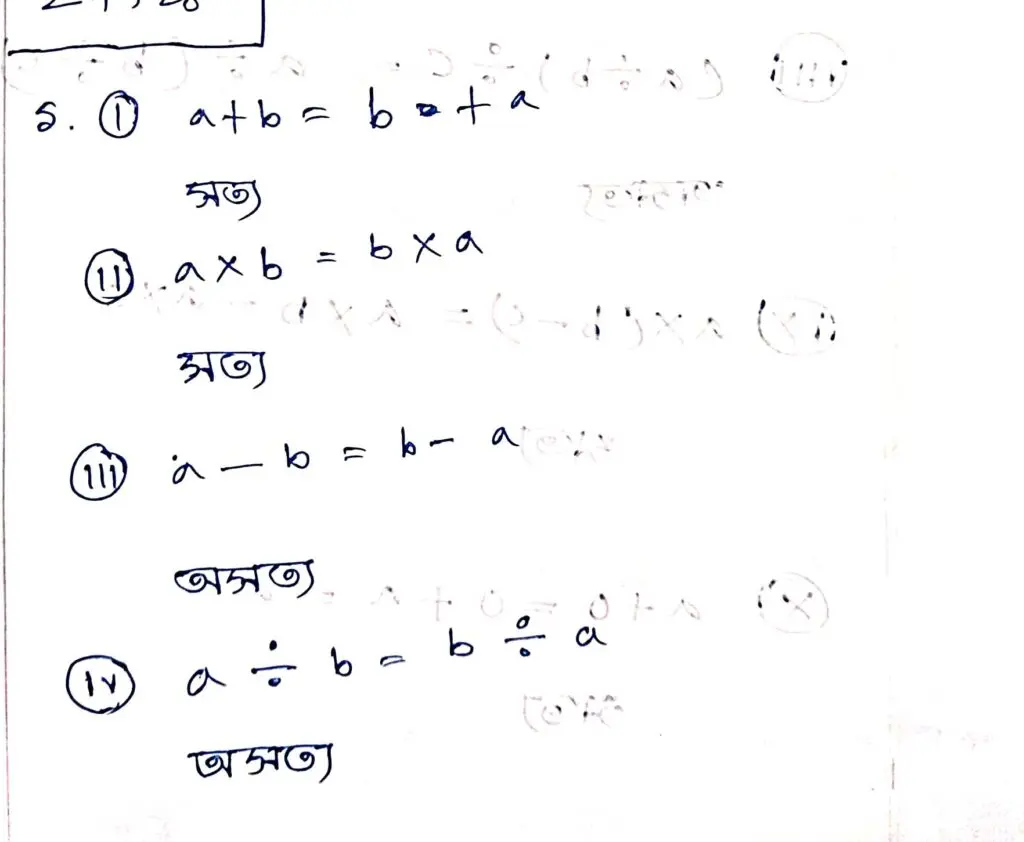 ১. (i) a+b = b + a
সত্য
(ii) a × b = b × a
সত্য
(iii) a – b = b – a
অসত্য
(iv) a ÷ b = b ÷ a
অসত্য